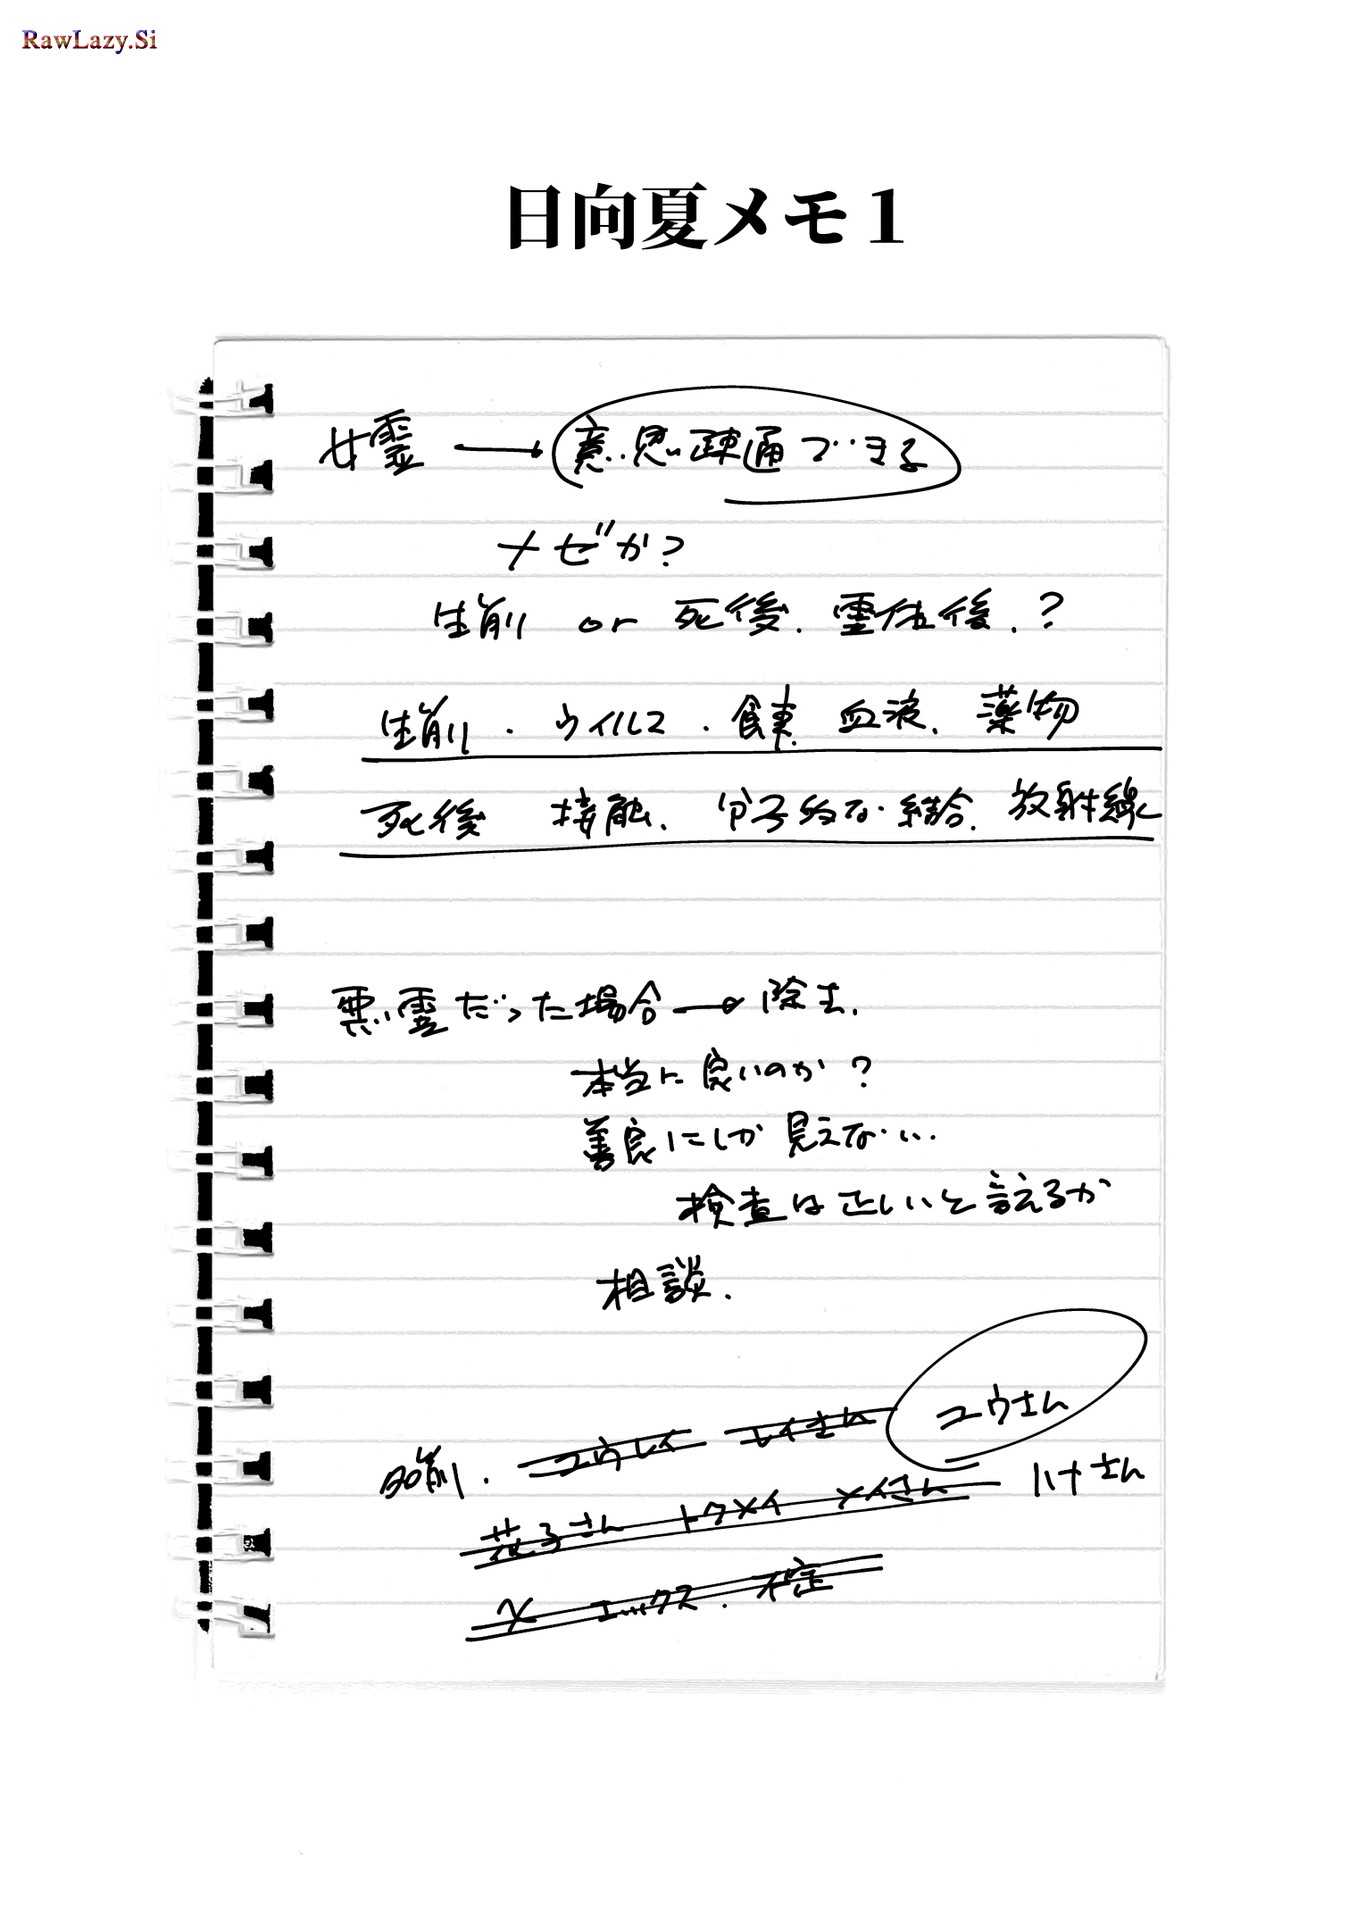 RawLazy.Si
日向夏メモ1
女霊 → 意思疎通できる
ナゼか?
生前 or 死後.霊体後.?
生前.ウイルス.食事.血液.薬物
死後 接触.分子的な結合.放射線
悪霊だった場合→除去.
本当に良いのか?
善良にしか見えない..
検査は正しいと言えるか
相談.
名前.ユウレイ レイさん ユウさん
花子さん トウメイ メイさん ハナさん
X エックス.不定